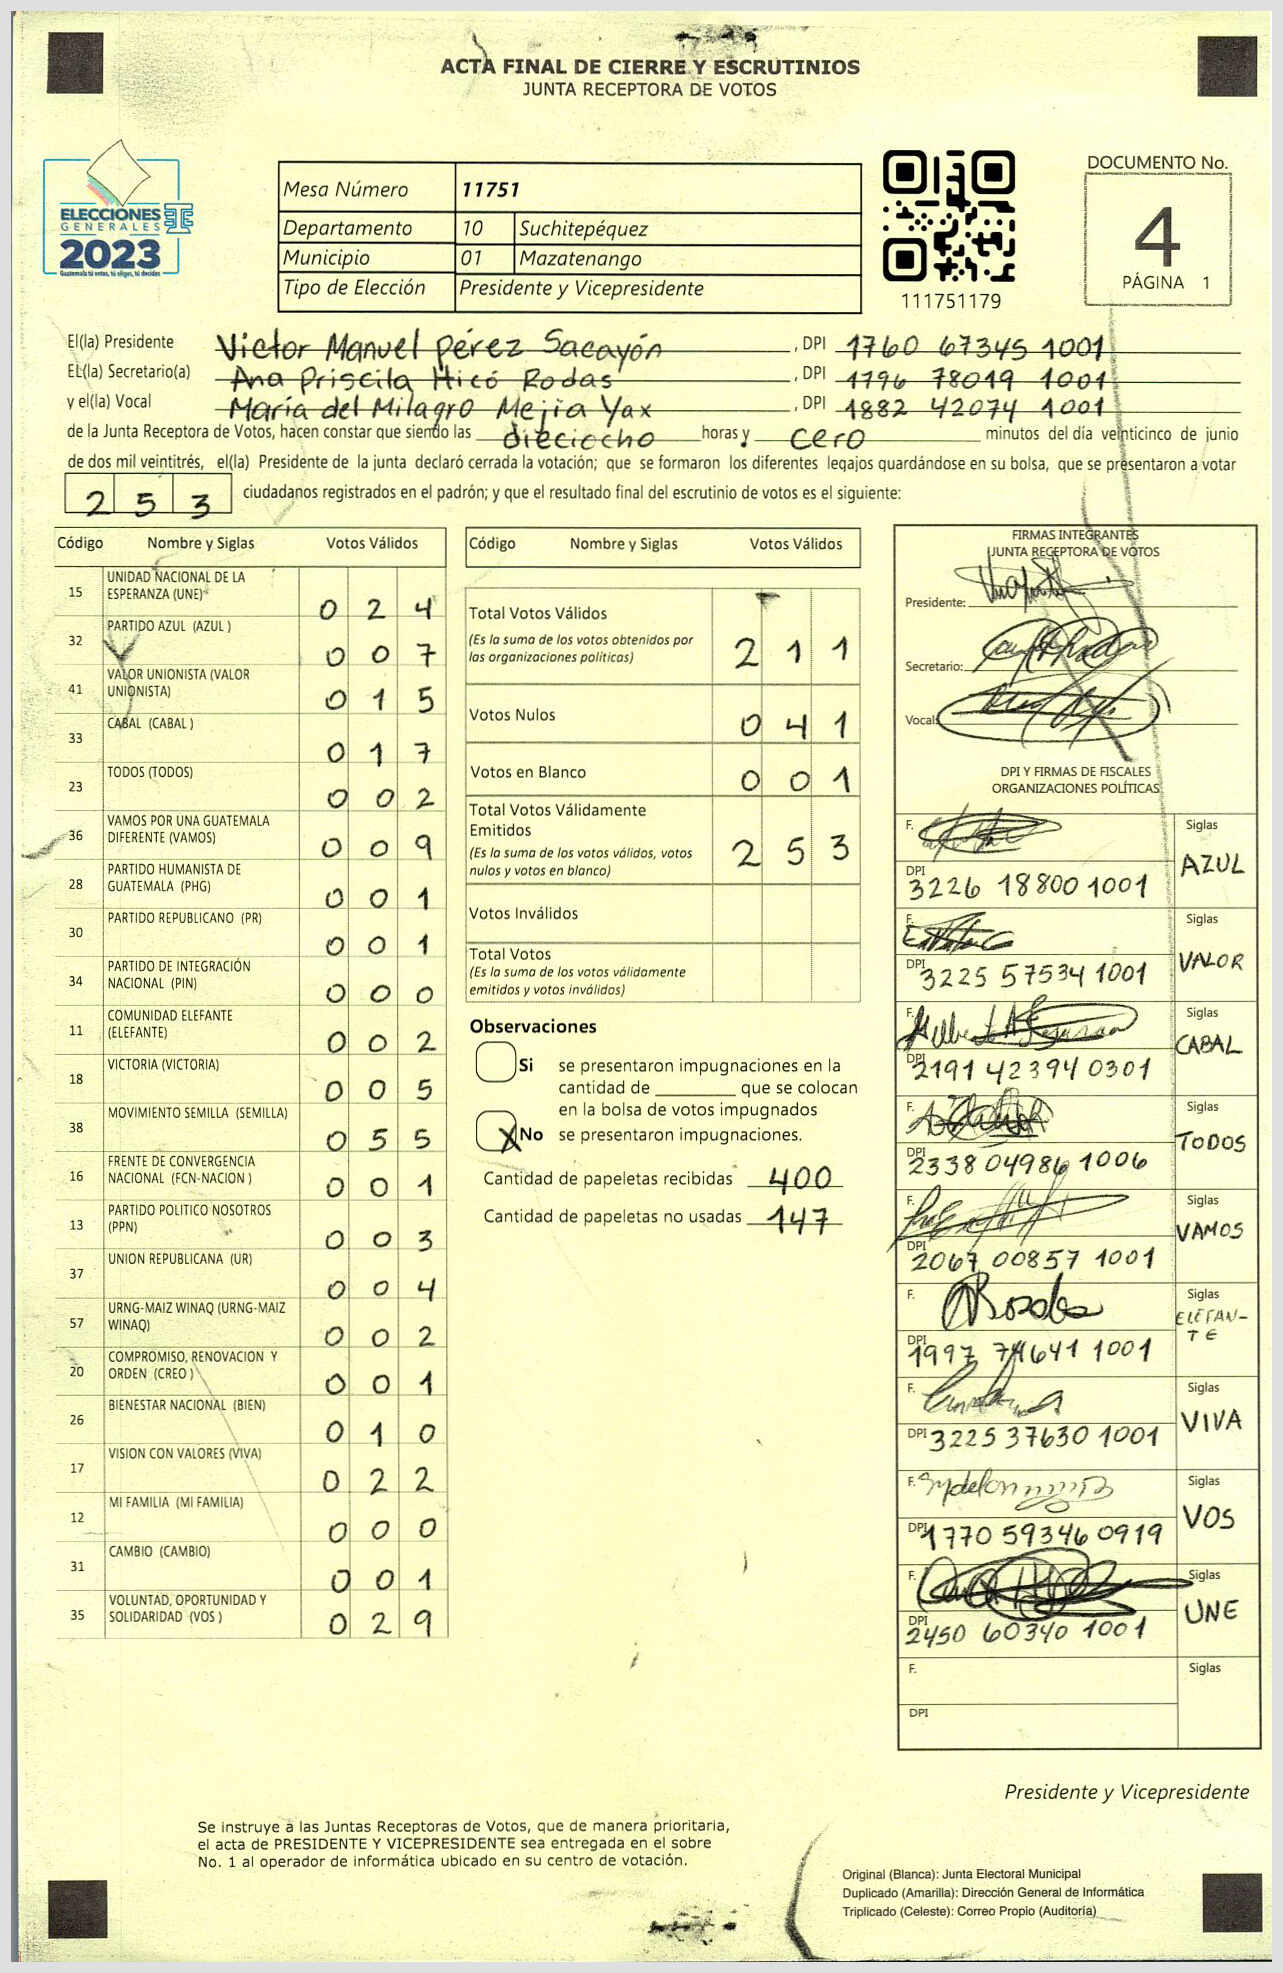 ACTA FINAL DE CIERRE Y ESCRUTINIOS
JUNTA RECEPTORA DE VOTOS
ELECCIONES
GENERALES
2023
Guatemala tú votas, tú eliges, tú decides
Mesa Número 11751
Departamento 10 Suchitepéquez
Municipio 01 Mazatenango
Tipo de Elección Presidente y Vicepresidente
111751179
DOCUMENTO No.
4
PÁGINA 1
El(la) Presidente Victor Manuel Pérez Sacayón, DPI 1760 67345 1001
EL(la) Secretario(a) Ana Priscila Hicó Rodas, DPI 1796 78019 1001
y el(la) Vocal María del Milagro Mejia Yax, DPI 1882 42074 1001
de la Junta Receptora de Votos, hacen constar que siendo las dieciocho horas y cero minutos del día veinticinco de junio
de dos mil veintitrés, el(la) Presidente de la junta declaró cerrada la votación; que se formaron los diferentes legajos quardándose en su bolsa, que se presentaron a votar
253 ciudadanos registrados en el padrón; y que el resultado final del escrutinio de votos es el siguiente:
Código Nombre y Siglas Votos Válidos
15 UNIDAD NACIONAL DE LA
ESPERANZA (UNE) 0 2 4
32 PARTIDO AZUL (AZUL ) 0 0 7
41 VALOR UNIONISTA (VALOR
UNIONISTA) 0 1 5
33 CABAL (CABAL ) 0 1 7
23 TODOS (TODOS) 0 0 2
36 VAMOS POR UNA GUATEMALA
DIFERENTE (VAMOS) 0 0 9
28 PARTIDO HUMANISTA DE
GUATEMALA (PHG) 0 0 1
30 PARTIDO REPUBLICANO (PR) 0 0 1
34 PARTIDO DE INTEGRACIÓN
NACIONAL (PIN) 0 0 0
11 COMUNIDAD ELEFANTE
(ELEFANTE) 0 0 2
18 VICTORIA (VICTORIA) 0 0 5
38 MOVIMIENTO SEMILLA (SEMILLA) 0 5 5
16 FRENTE DE CONVERGENCIA
NACIONAL (FCN-NACION ) 0 0 1
13 PARTIDO POLITICO NOSOTROS
(PPN) 0 0 3
37 UNION REPUBLICANA (UR) 0 0 4
57 URNG-MAIZ WINAQ (URNG-MAIZ
WINAQ) 0 0 2
20 COMPROMISO, RENOVACION Y
ORDEN (CREO ) 0 0 1
26 BIENESTAR NACIONAL (BIEN) 0 1 0
17 VISION CON VALORES (VIVA) 0 2 2
12 MI FAMILIA (MI FAMILIA) 0 0 0
31 CAMBIO (CAMBIO) 0 0 1
35 VOLUNTAD, OPORTUNIDAD Y
SOLIDARIDAD (VOS ) 0 2 9
Código Nombre y Siglas Votos Válidos
Total Votos Válidos
(Es la suma de los votos obtenidos por
las organizaciones políticas) 2 1 1
Votos Nulos 0 4 1
Votos en Blanco 0 0 1
Total Votos Válidamente
Emitidos
(Es la suma de los votos válidos, votos
nulos y votos en blanco) 2 5 3
Votos Inválidos
Total Votos
(Es la suma de los votos válidamente
emitidos y votos inválidos)
Observaciones
Si se presentaron impugnaciones en la
cantidad de que se colocan
en la bolsa de votos impugnados
X No se presentaron impugnaciones.
Cantidad de papeletas recibidas 400
Cantidad de papeletas no usadas 147
FIRMAS INTEGRANTES
JUNTA RECEPTORA DE VOTOS
Presidente:
Secretario:
Vocal:
DPI Y FIRMAS DE FISCALES
ORGANIZACIONES POLÍTICAS
F. Siglas
DPI 3226 18800 1001 AZUL
F. Siglas
DPI 3225 57534 1001 VALOR
F. Siglas
DPI 2191 42394 0301 CABAL
F. Siglas
DPI 2338 04986 1006 TODOS
F. Siglas
DPI 2067 00857 1001 VAMOS
F. Siglas
ELEFAN-
TE
DPI 1997 74641 1001
F. Siglas
DPI 3225 37630 1001 VIVA
F. Siglas
DPI 1770 59346 0919 VOS
F. Siglas
DPI 2450 60340 1001 UNE
F. Siglas
DPI
Presidente y Vicepresidente
Se instruye a las Juntas Receptoras de Votos, que de manera prioritaria,
el acta de PRESIDENTE Y VICEPRESIDENTE sea entregada en el sobre
No. 1 al operador de informática ubicado en su centro de votación.
Original (Blanca): Junta Electoral Municipal
Duplicado (Amarilla): Dirección General de Informática
Triplicado (Celeste): Correo Propio (Auditoría)